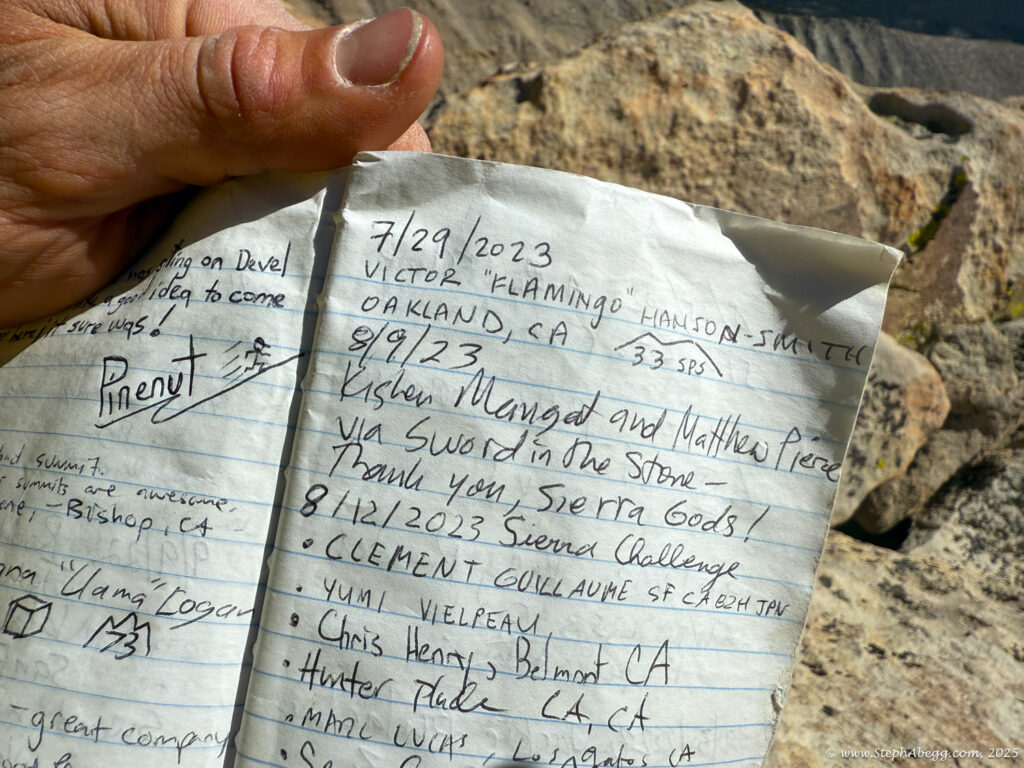 sitting on Devel
a good idea to come
it sure was!
Pinenut
summit.
summits are awesome,
- Bishop, CA
"Llama" Logan
73
- great company
7/29/2023
VICTOR "FLAMINGO" HANSON-SMITH
OAKLAND, CA 33 SPS
8/9/23
Kishen Mangat and Matthew Pierce
via Sword in the Stone -
Thank you, Sierra Gods!
8/12/2023 Sierra Challenge
• CLEMENT GUILLAUME SF CA BZH JPN
• YUMI VIELPEAU,
• Chris Henry, Belmont CA
• Hunter CA, CA
• MARC LUCAS, Los gatos CA
© www.StephAbegg.com, 2025